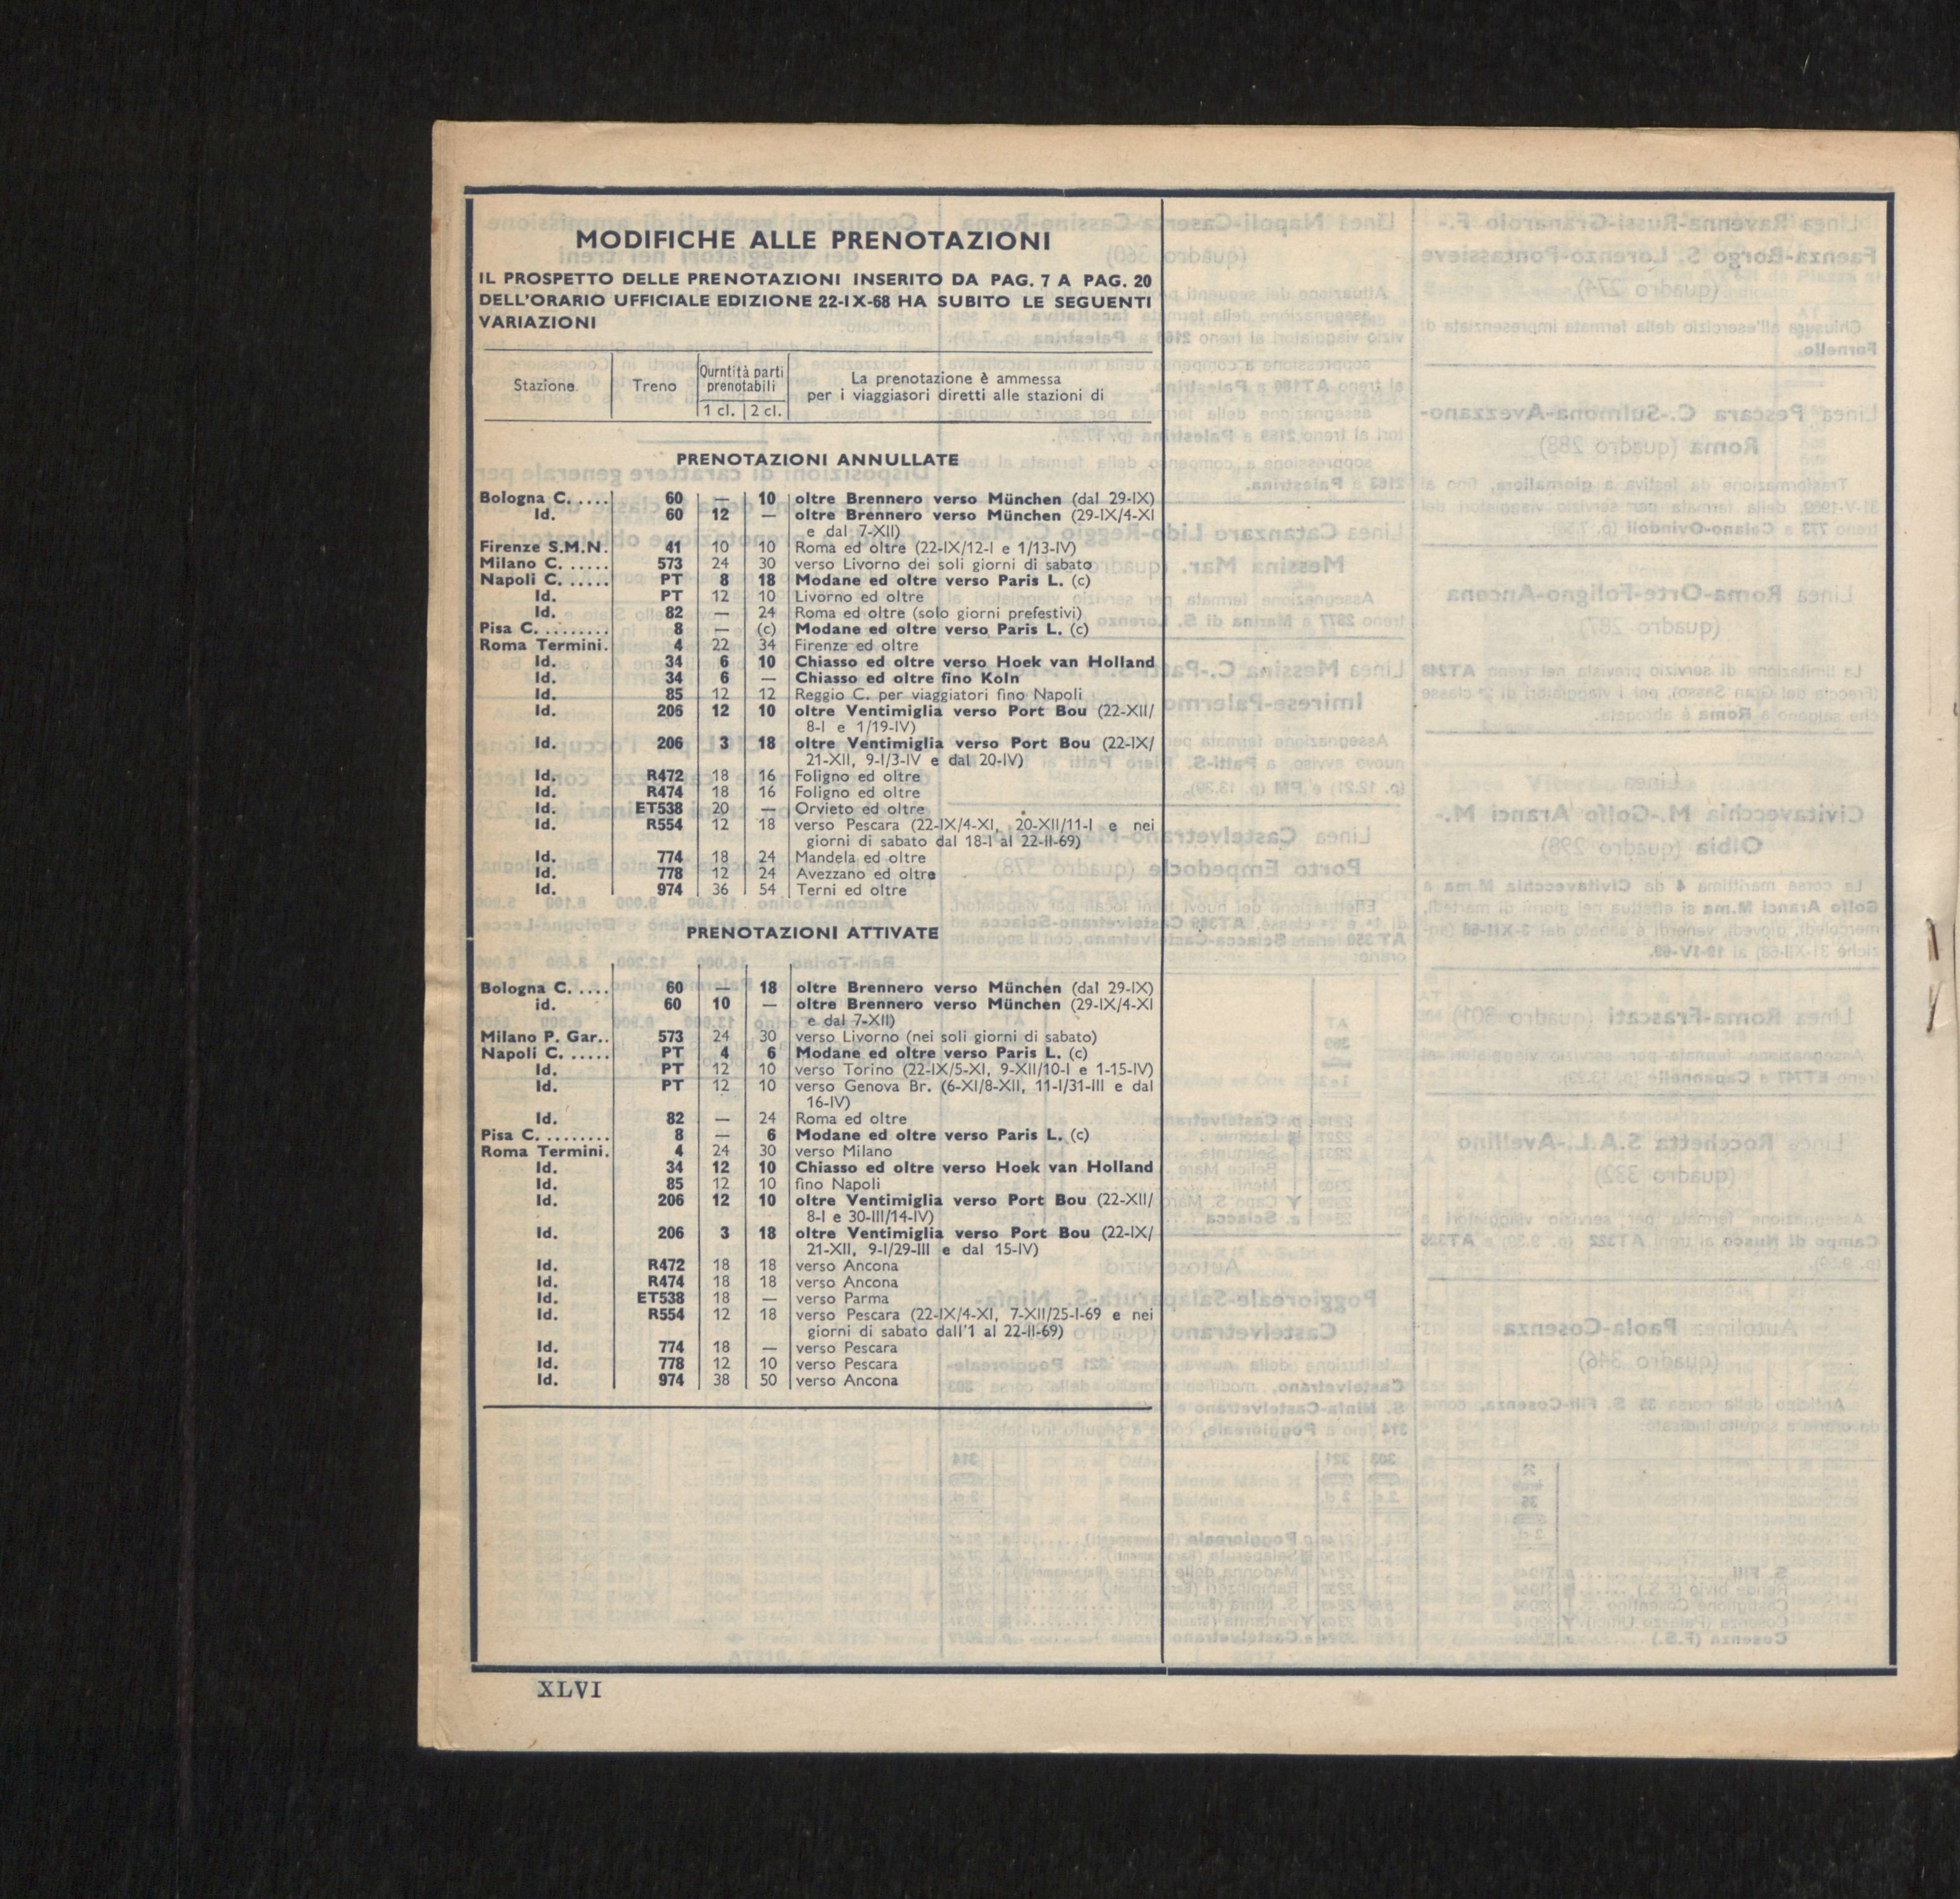 MODIFICHE ALLE PRENOTAZIONI
IL PROSPETTO DELLE PRENOTAZIONI INSERITO DA PAG. 7 A PAG. 20
DELL'ORARIO UFFICIALE EDIZIONE 22-IX-68 HA SUBITO LE SEGUENTI
VARIAZIONI
Stazione Treno Qurntità parti prenotabili 1 cl. 2 cl. La prenotazione è ammessa
per i viaggiasori diretti alle stazioni di
PRENOTAZIONI ANNULLATE
Bologna C. .... 60 — 10 oltre Brennero verso München (dal 29-IX)
Id. 60 12 — oltre Brennero verso München (29-IX/4-XI
e dal 7-XII)
Firenze S.M.N. 41 10 10 Roma ed oltre (22-IX/12-I e 1/13-IV)
Milano C. ..... 573 24 30 verso Livorno dei soli giorni di sabato
Napoli C. ..... PT 8 18 Modane ed oltre verso Paris L. (c)
Id. PT 12 10 Livorno ed oltre
Id. 82 — 24 Roma ed oltre (solo giorni prefestivi)
Pisa C. ........ 8 — (c) Modane ed oltre verso Paris L. (c)
Roma Termini. 4 22 34 Firenze ed oltre
Id. 34 6 10 Chiasso ed oltre verso Hoek van Holland
Id. 34 6 — Chiasso ed oltre fino Koln
Id. 85 12 12 Reggio C. per viaggiatori fino Napoli
Id. 206 12 10 oltre Ventimiglia verso Port Bou (22-XII/
8-I e 1/19-IV)
Id. 206 3 18 oltre Ventimiglia verso Port Bou (22-IX/
21-XII, 9-I/3-IV e dal 20-IV)
Id. R472 18 16 Foligno ed oltre
Id. R474 18 16 Foligno ed oltre
Id. ET538 20 — Orvieto ed oltre
Id. R554 12 18 verso Pescara (22-IX/4-XI, 20-XII/11-I e nei
giorni di sabato dal 18-I al 22-II-69)
Id. 774 18 24 Mandela ed oltre
Id. 778 12 24 Avezzano ed oltre
Id. 974 36 54 Terni ed oltre
PRENOTAZIONI ATTIVATE
Bologna C. .... 60 — 18 oltre Brennero verso München (dal 29-IX)
id. 60 10 — oltre Brennero verso München (29-IX/4-XI
e dal 7-XII)
Milano P. Gar.. 573 24 30 verso Livorno (nei soli giorni di sabato)
Napoli C. ..... PT 4 6 Modane ed oltre verso Paris L. (c)
Id. PT 12 10 verso Torino (22-IX/5-XI, 9-XII/10-I e 1-15-IV)
Id. PT 12 10 verso Genova Br. (6-XI/8-XII, 11-I/31-III e dal
16-IV)
Id. 82 — 24 Roma ed oltre
Pisa C. ........ 8 — 6 Modane ed oltre verso Paris L. (c)
Roma Termini. 4 24 30 verso Milano
Id. 34 12 10 Chiasso ed oltre verso Hoek van Holland
Id. 85 12 10 fino Napoli
Id. 206 12 10 oltre Ventimiglia verso Port Bou (22-XII/
8-I e 30-III/14-IV)
Id. 206 3 18 oltre Ventimiglia verso Port Bou (22-IX/
21-XII, 9-I/29-III e dal 15-IV)
Id. R472 18 18 verso Ancona
Id. R474 18 18 verso Ancona
Id. ET538 18 — verso Parma
Id. R554 12 18 verso Pescara (22-IX/4-XI, 7-XII/25-I-69 e nei
giorni di sabato dall'1 al 22-II-69)
Id. 774 18 — verso Pescara
Id. 778 12 10 verso Pescara
Id. 974 38 50 verso Ancona
XLVI